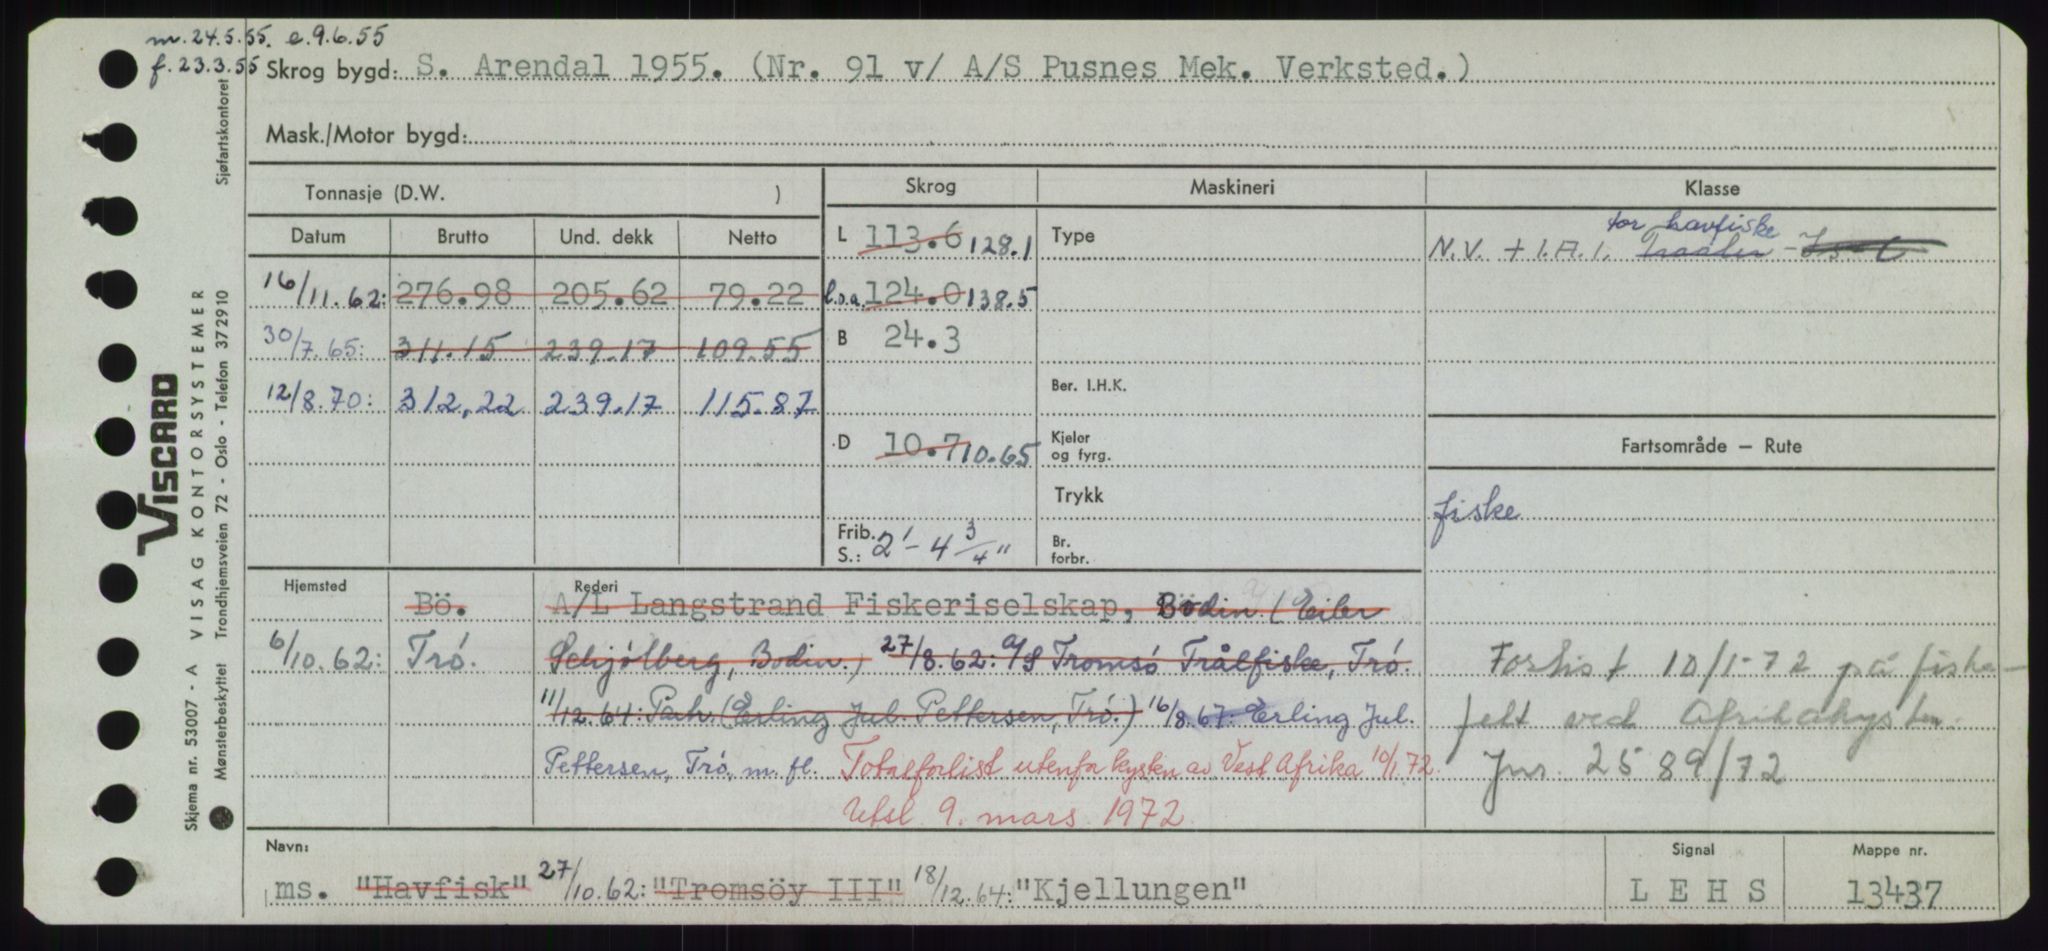 m. 24.5.55. e. 9.6.55
f. 23.3.55
Skrog bygd: S. Arendal 1955. (Nr. 91 v/ A/S Pusnes Mek. Verksted.)
Mask./Motor bygd:
Tonnasje (D.W. )
Skrog
Maskineri
Klasse
Datum Brutto Und. dekk Netto
L 113.6 128.1
Type
for havfiske
N.V. + 1.A.1. Traaler -
16/11.62: 276.98 205.62 79.22
l.o.a. 124.0 138.5
30/7.65: 311.15 239.17 109.55
B 24.3
12/8.70: 312,22 239.17 115.87
Ber. I.H.K.
D 10.7 10.65
Kjeler
og fyrg.
Fartsområde – Rute
Trykk
fiske
Frib.
S.: 2' - 4 3/4"
Br.
forbr.
Hjemsted
Rederi
Bö. A/L Langstrand Fiskeriselskap, Bodin. (Eiler
6/10.62: Trö. Schjölberg, Bodin.) 27/8.62: A/S Tromsö Trålfiske, Trö.
11/12.64: Partr. (Erling Jul. Pettersen, Trö.) 16/8.67: Erling Jul.
Pettersen, Trö, m. fl. Totalforlist utenfor kysten av Vest Afrika 10/1.72.
Utsl. 9. mars 1972.
Forlist 10/1-72 på fiske-
felt ved Afrikakysten.
Jnr. 2589/72
Navn:
ms. "Havfisk" 27/10.62: "Tromsöy III" 18/12.64: "Kjellungen"
Signal
L E H S
Mappe nr.
13437
Skjema nr. 53007 - A VISAG KONTORSYSTEMER
Mønsterbeskyttet Trondhjemsveien 72 - Oslo - Telefon 372910 Sjøfartskontoret
VISCARD